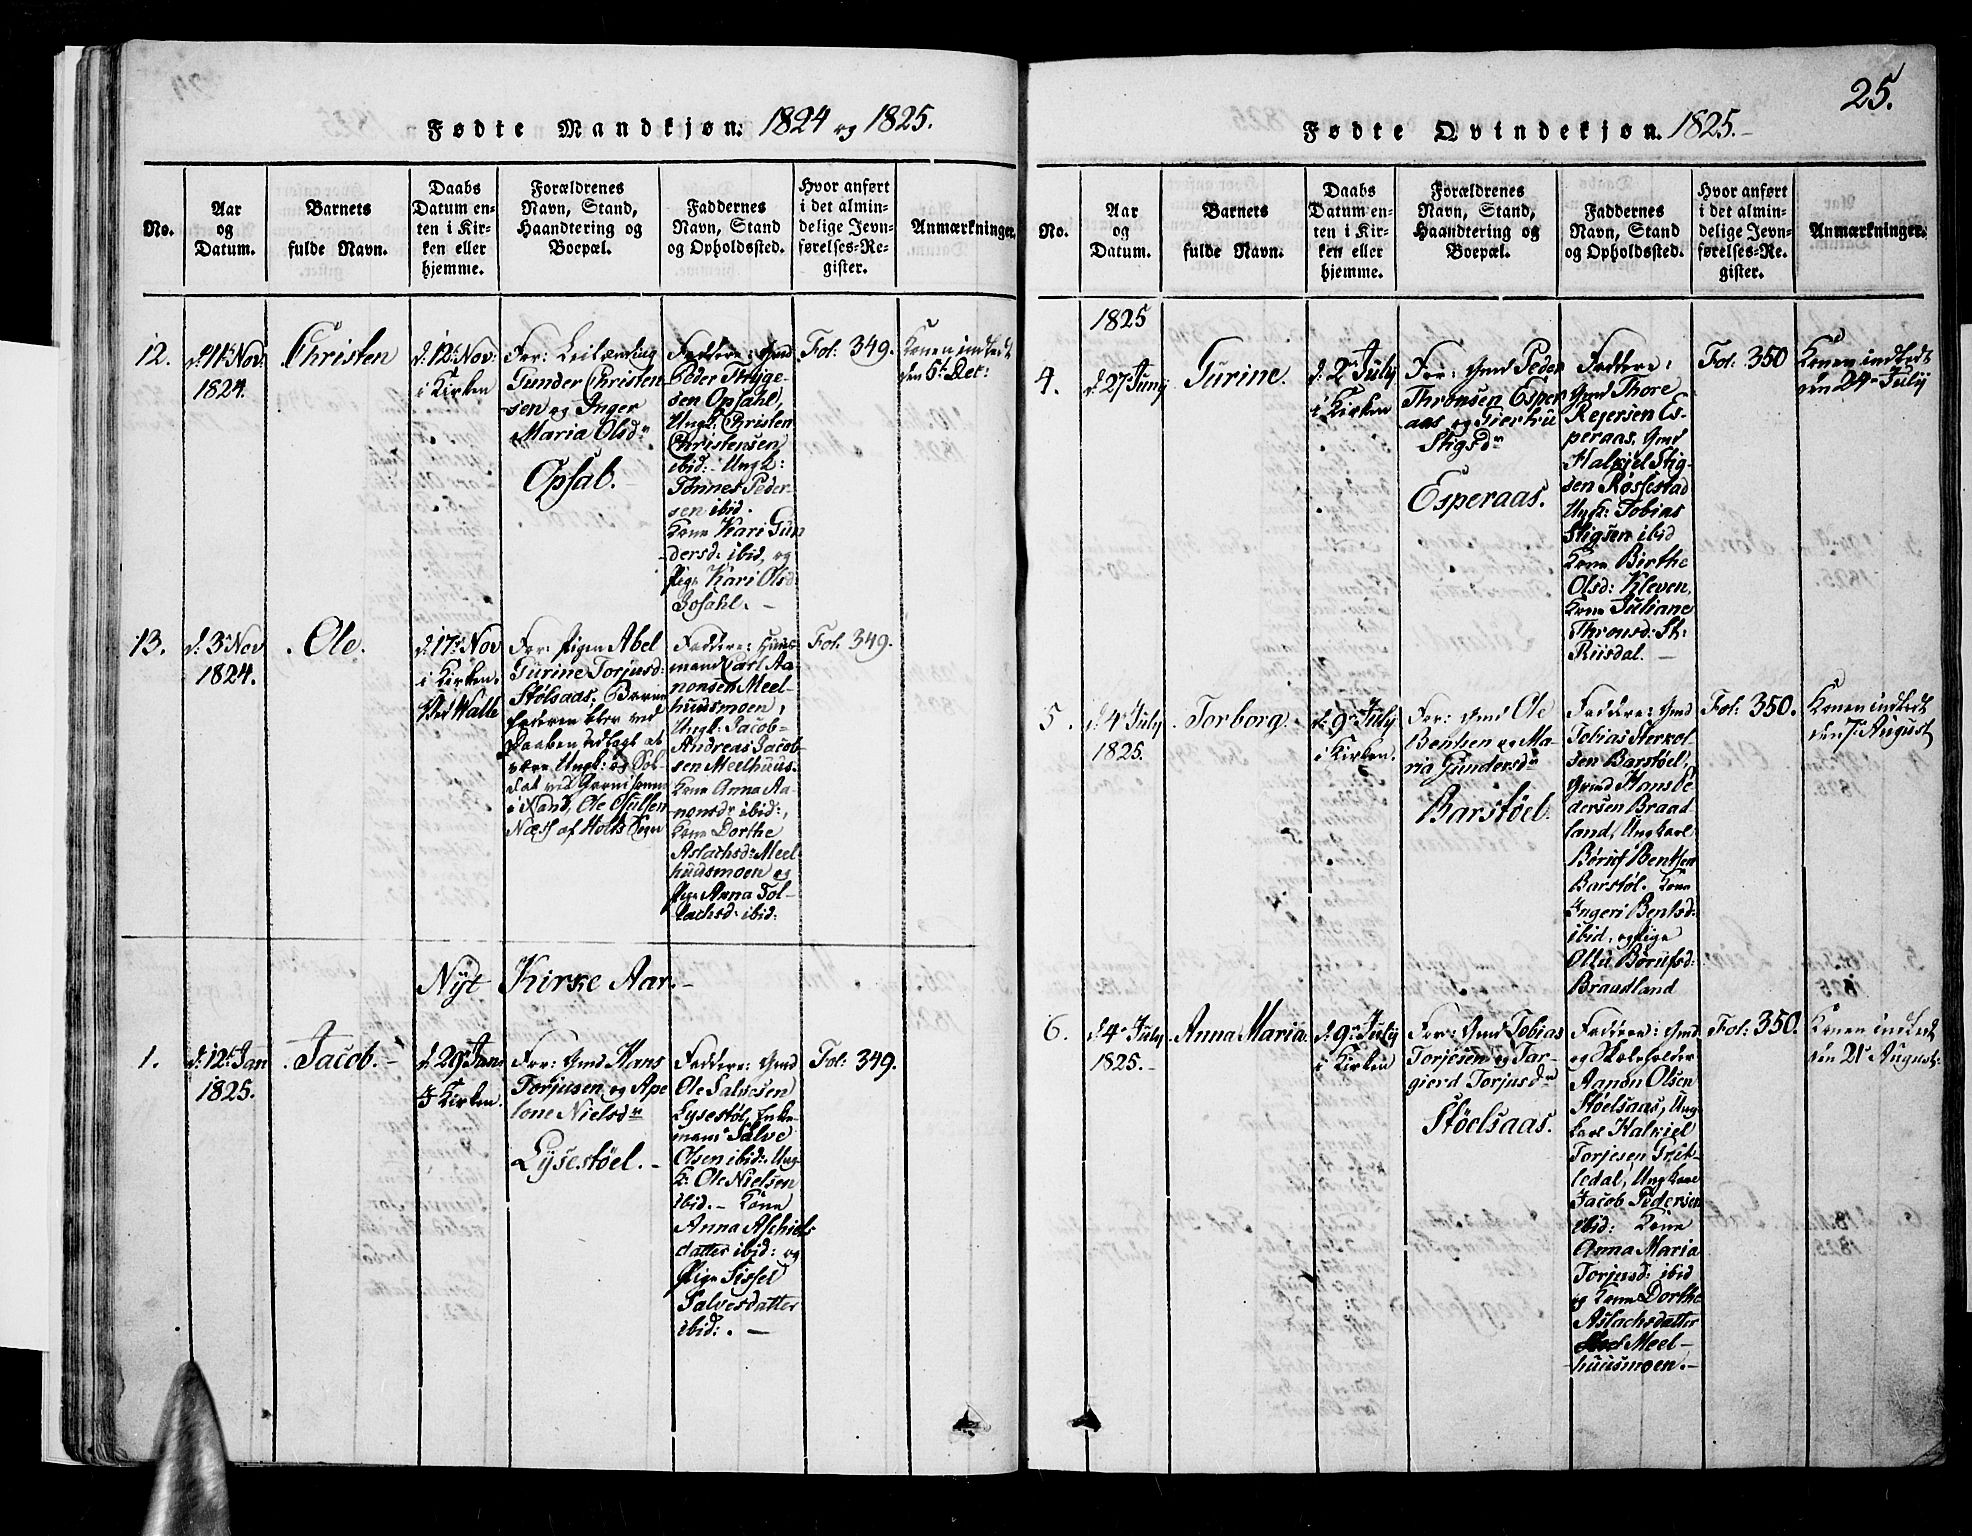 Fødte Mandkjøn. 1824 og 1825.
No.
Aar
og
Datum.
Barnets
fulde Navn.
Daabs
Datum en-
ten i Kir-
ken eller
hjemme.
Forældrenes
Navn, Stand,
Haandtering og
Boepæl.
Faddernes
Navn, Stand
og Opholdssted.
Hvor anført
i det almin-
delige Jevn-
førelses-Re-
gister.
Anmærkninger.
12.
d: 11te Nov:
1824.
Christen
d: 12te Nov:
i Kirken
For: Leilænding
Gunder Christen-
sen og Inger
Maria Olsdr
Opsal. -
Faddere: Gmd
Peder Thryge-
sen Opsahl,
Ungk. Christen
Christensen
ibid: - Ungk:
Tønnes Peder-
sen ibid.
Kone Kari Gun
dersd: ibid, og
Pige Kari Olsd:
Fol: 349.
Konen indledt
den 5te Dec:
13.
d. 3de Nov
1824.
Ole.
d: 17de Nov
i Kirken.
Ved Walle
For: Pigen Abel
Turine Torjusd:
Stølsaas; Barne
faderen blev ved
Daaben udlagt at
være Ungk: og Sol-
dat
Næss af Holts Sogn
Faddere: Huus-
mand Carl Aa-
nonsen Meel-
huusmoen,
Ungk. Jacob
Andreas Jacob-
sen Meelhuus.
Kone Anna Aa-
nonsdr ibid:,
Kone Dorthe
Aslachsd: Meel-
huusmoen og
Pige Anna Tol-
lachsd: ibid:
Fol: 349.
Nyt Kirke Aar. -
1.
d: 12te Jan
1825.
Jacob. -
d. 29de Jan:
I Kirken.
For: Gmd Hans
Torjusen og Ape
lone Nielsdr
Lysestøel. -
Faddere: Gmd
Ole Salvesen
Lysestøl, Enke-
mand Salve
Olsen ibid:, Ung
k: Ole Nielsen
ibid. - Kone
Anna Aschiels
datter ibid: og
Pige Sissel
Salvesdatter
ibid: . -
Fol: 349.
25.
Fødte Qvindekjøn. 1825. -
No.
Aar
og
Datum.
Barnets
fulde Navn.
Daabs
Datum en-
ten i Kir-
ken eller
hjemme.
Forældrenes
Navn, Stand,
Haandtering og
Boepæl.
Faddernes
Navn, Stand
og Opholdssted.
Hvor anført
i det almin-
delige Jevn-
førelses-Re-
gister.
Anmærkninger.
1825
4.
d: 27 Juny
Turine.
d: 2de July
i Kirken
For: Gmd Peder
Thronsen Esper
aas og Gierthru
Stigsdr
Esperaas.
Faddere:
Gmd Thore
Rejersen Es-
peraas, Gmd
Halviel Stig-
sen Røssestad
Ungk: Tobias
Stigsen ibid
Kone Birthe
Olsd: Kleven,
Kone Juliane
Thronsd: St:
Riisdal. -
Fol: 350
Konen indledt
den 24de July
5.
d 4de July
1825.
Torborg.
d: 9de July
i Kirken.
For: Gmd Ole
Bentsen og Ma-
ria Gundersdr
Barstøel.
Faddere: Gmd
Tobias Sterkol-
sen Barstøel,
Gmd Hans Pe-
dersen Braad
land, Ungkarl
Børuf Bentsen
Barstøl. Kone
Ingeri Bentsd:
ibid, og Pige
Børufsd:
Braadland
Fol: 350.
Konen indledt
den 7de August
6.
d 4de July
1825. -
Anna Maria
d: 9de July
i Kirken
For: Gmd Tobias
Torjesen og Tar-
gierd Torjusdr
Støelsaas.
Faddere: Gmd
og Skoleholder
Aanon Olsen
Støelsaas, Ung
karl Halviel
Torjesen
Ungkarl
Jacob Pedersen
ibid: Kone
Anna Maria
Torjusd: ibid
og Kone Dorthe
Aslachsdatter
Meel-
huusmoen. -
Fol: 350.
Konen indledt
den 21de August.